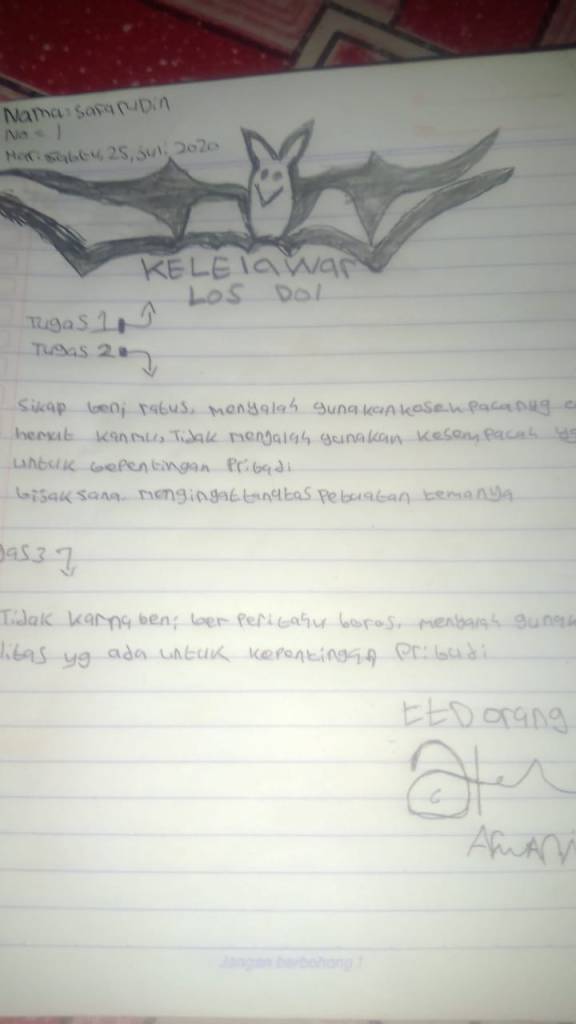 Nama: Safarudin
No = 1
Hari: Sabtu, 25, Juli 2020
KELElaWar
LOS DOl
Tugas 1
Tugas 2
Sikap beni ratus, menyalah gunakan
hemat kanmu, Tidak menyalah gunakan kesempacah yg
untuk kepentingan Pribadi
bijak sana. mengingat tangtas Pebuatan temanya
gas 3
Tidak karna beni ber Peritahu boros, menyalah gunak
litas yg ada untuk kepentingan Pribudi
TTD orang
Jangan berbohong !